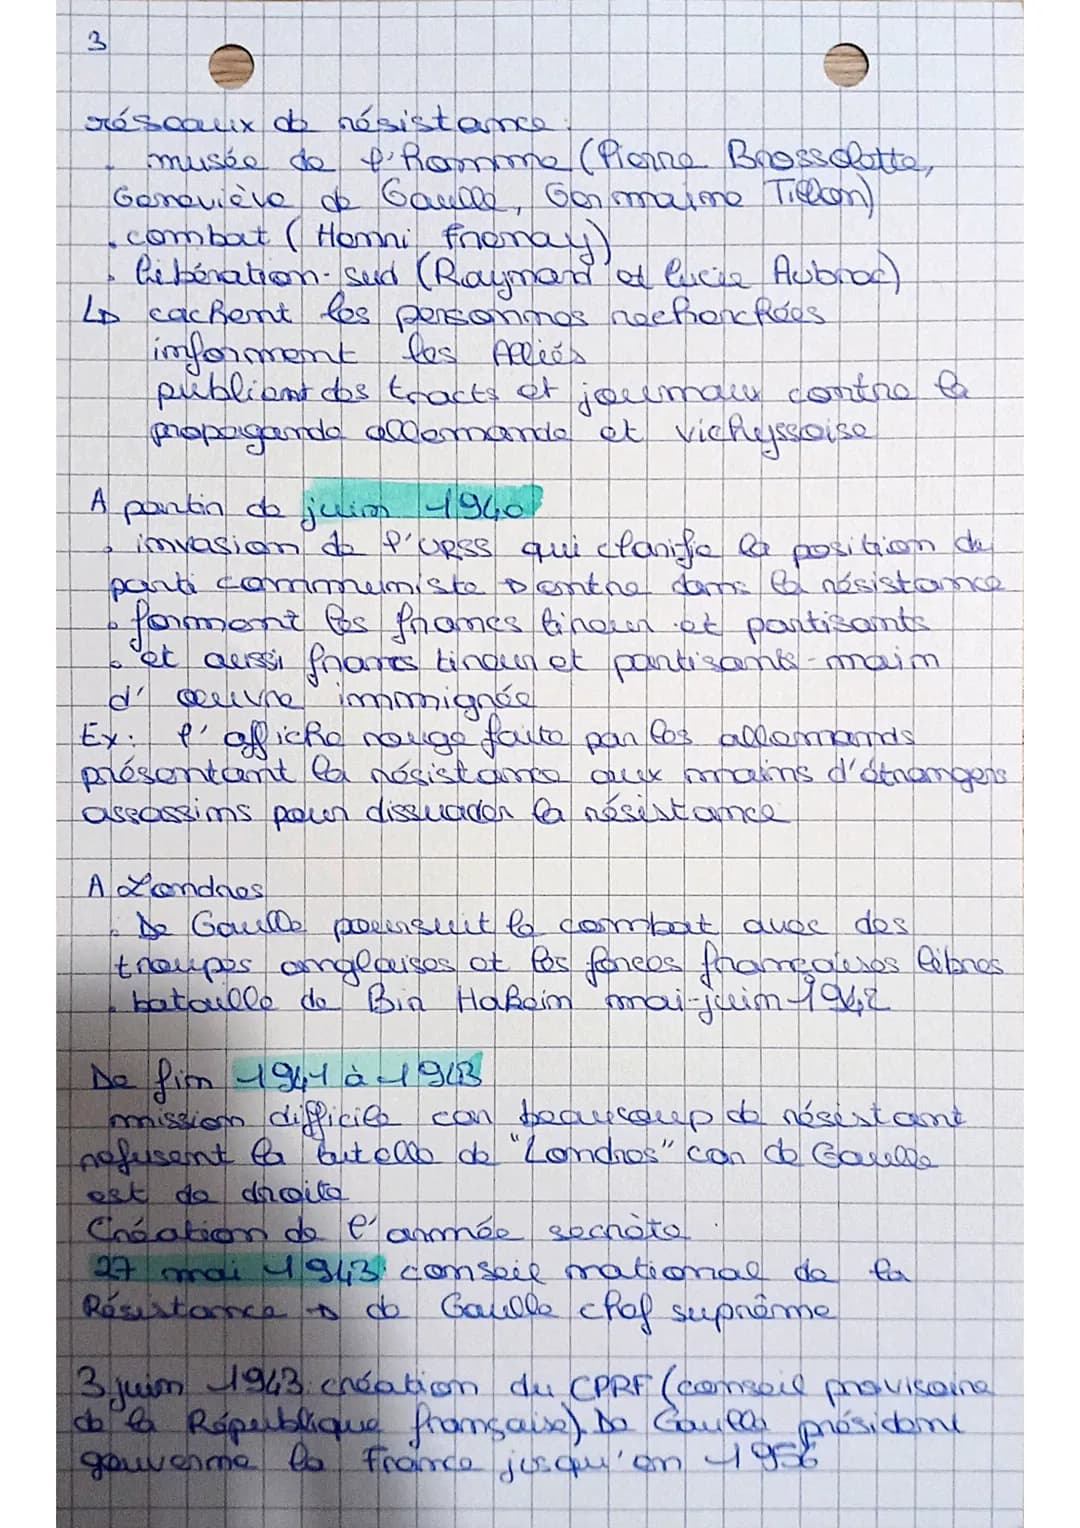 3
réseaux de résistance :
. musée de l'homme (Pierre Brossolette,
Geneviève de Gaulle, Germaine Tillon)
. combat (Henri frenay)
. libération-sud (Raymond et lucie Aubrac)
↳ cachent les personnes recherchées
informent les Alliés
publient des tracts et journaux contre la
propagande allemande et vichyssoise
A partir de juin 1940
. invasion de l'URSS qui clarifie la position du
parti communiste → entre dans la résistance
. forment les francs tireur et partisants
. et aussi francs tireur et partisants-main
d'œuvre immigrée
Ex: l'affiche rouge faite par les allemands
présentant la résistance aux mains d'étrangers
assassins pour dissuader la résistance
A Londres
. De Gaulle poursuit le combat avec des
troupes anglaises et les forces françaises libres
. bataille de Bir Hakeim mai-juin 1942
De fin 1941 à 1943
mission difficile car beaucoup de résistant
refusent la tutelle de "Londres" car de Gaulle
est de droite
Création de l'armée secrète
27 mai 1943 conseil national de la
Résistance → de Gaulle chef suprême
3 juin 1943: création du CPRF (conseil provisoire
de la République française). De Gaulle président
gouverne la France jusqu'en 1956